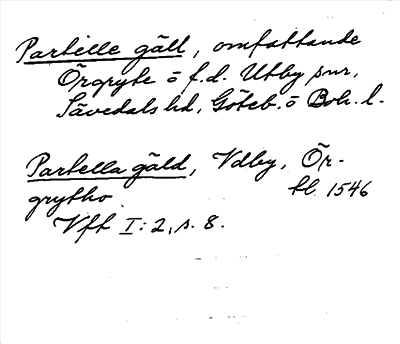 Partille gäll, omfattande
Örgryte o f.d. Utby snr,
Sävedals hd, Göteb. o Boh. l.
Partella gäld, Vdby, Ör-
grytho hl. 1546
Vfh I: 2, s. 8.